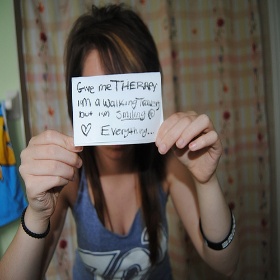 Give me THERAPY
i'm a walking Travesty
but i'm Smiling @
♡ Everything...